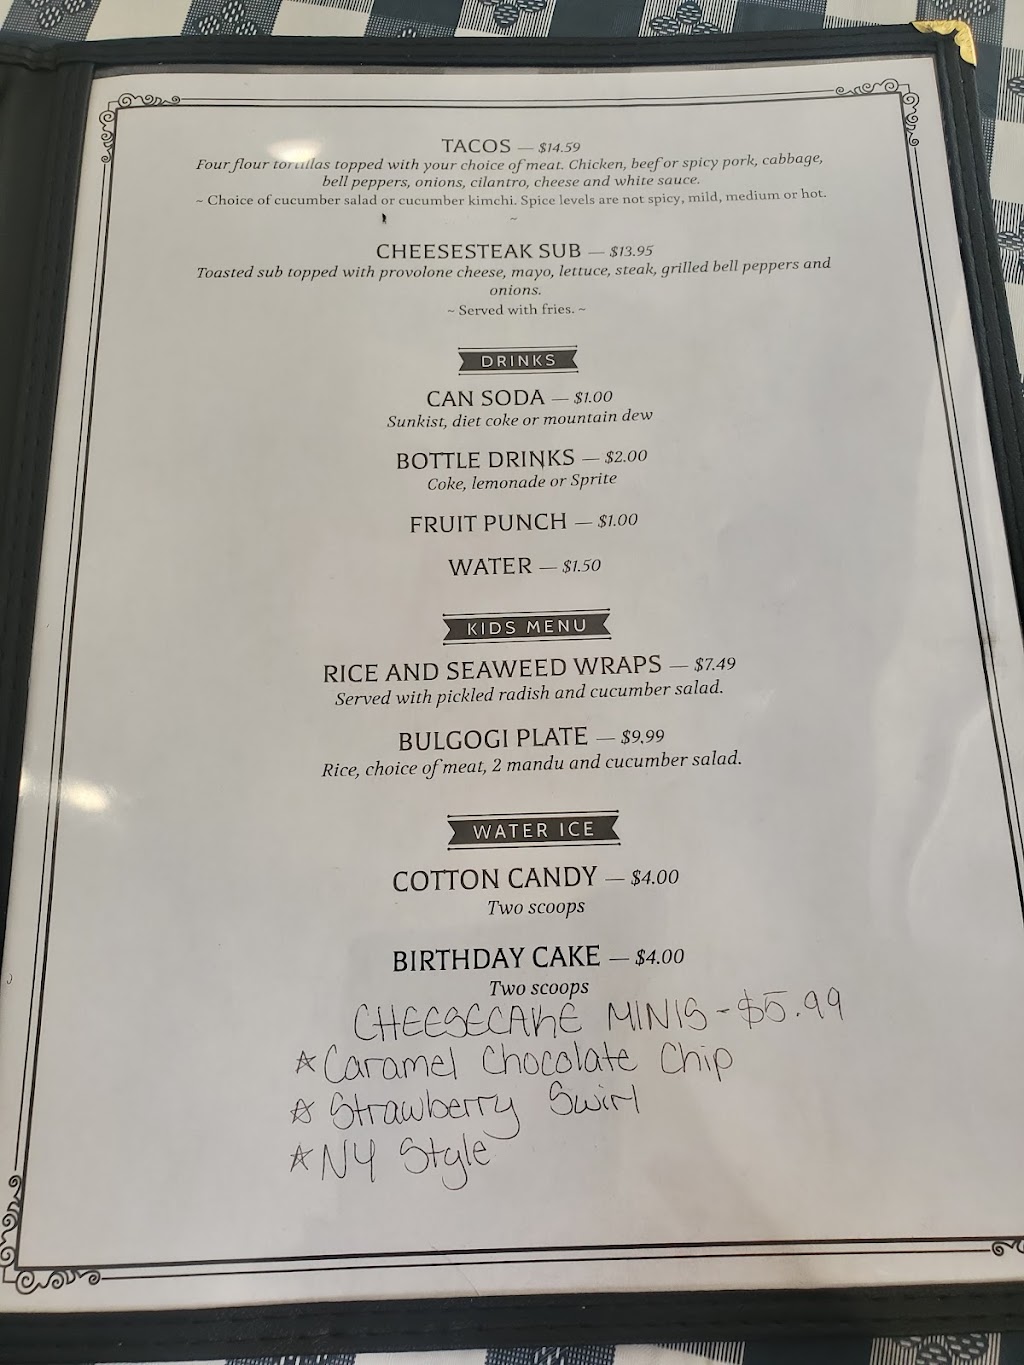 TACOS — $14.59
Four flour tortillas topped with your choice of meat. Chicken, beef or spicy pork, cabbage,
bell peppers, onions, cilantro, cheese and white sauce.
~ Choice of cucumber salad or cucumber kimchi. Spice levels are not spicy, mild, medium or hot.
~
CHEESESTEAK SUB — $13.95
Toasted sub topped with provolone cheese, mayo, lettuce, steak, grilled bell peppers and
onions.
~ Served with fries. ~
DRINKS
CAN SODA — $1.00
Sunkist, diet coke or mountain dew
BOTTLE DRINKS — $2.00
Coke, lemonade or Sprite
FRUIT PUNCH — $1.00
WATER — $1.50
KIDS MENU
RICE AND SEAWEED WRAPS — $7.49
Served with pickled radish and cucumber salad.
BULGOGI PLATE — $9.99
Rice, choice of meat, 2 mandu and cucumber salad.
WATER ICE
COTTON CANDY — $4.00
Two scoops
BIRTHDAY CAKE — $4.00
Two scoops
CHEESECAKE MINIS - $5.99
☆ Caramel Chocolate Chip
☆ Strawberry Swirl
☆ NY Style